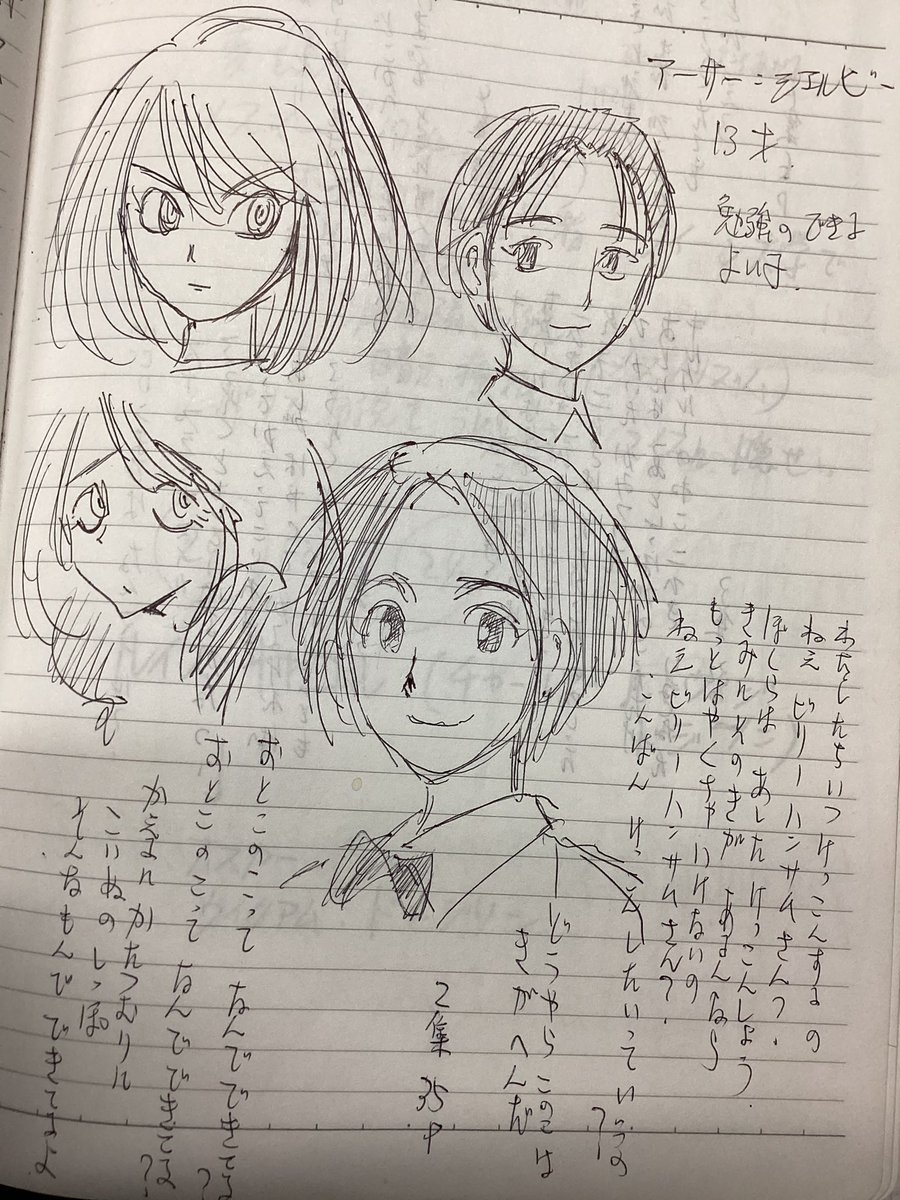 アーサー:シェルビー
13才
勉強のできる
よい子.
わたしたちいつけっこんするの
ねえ ビリーハンサムさん?
ぼくらは あした けっこんしよう
きみに そのきが あるんなら
もっとはやくちゃ いけないの
ねえ ビリーハンサムさん?
こんばん けっこんしたいって いうの?
どうやら このこは
きがへんだ
2集 35P
おとこのこって なんでできてる
おとこのこって なんでできてる?
かえるに かたつむりに
こいぬの しっぽ
そんなもんで できてるよ